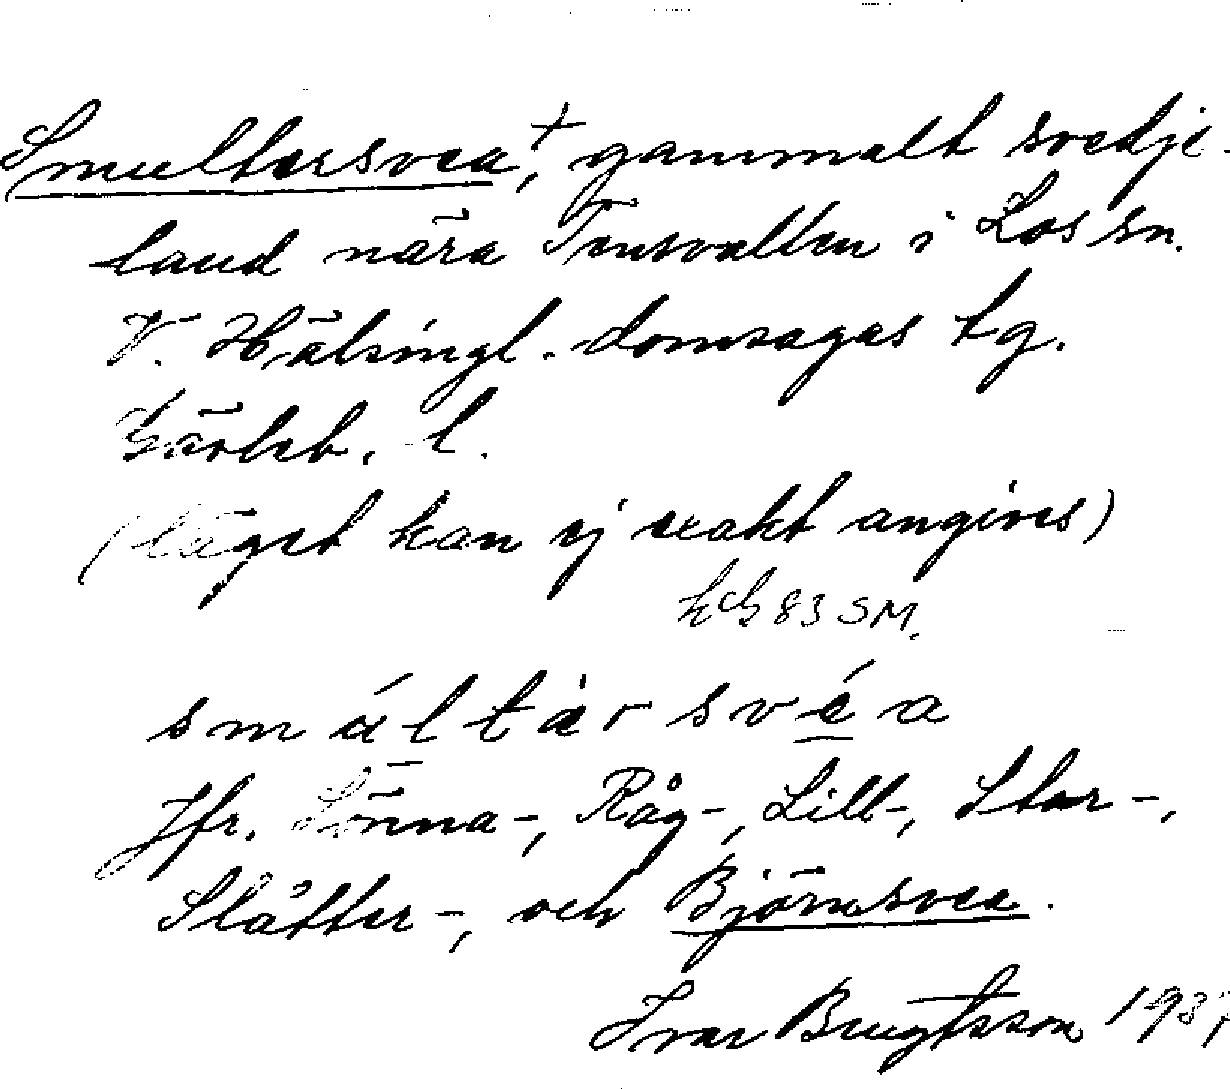 Smultersvea+, gammalt svedje-
land nära Tensvallen i Los sn.
V. Hälsingl. domsagas tg.
Gävleb. l.
(Läget kan ej exakt angives)
83 SM.
smáltàrsvéa
Jfr. Lönna-, Råg-, Lill-, Stor-,
Slåtter-, och Björnsvea.
Ivar Bengtsson 1937